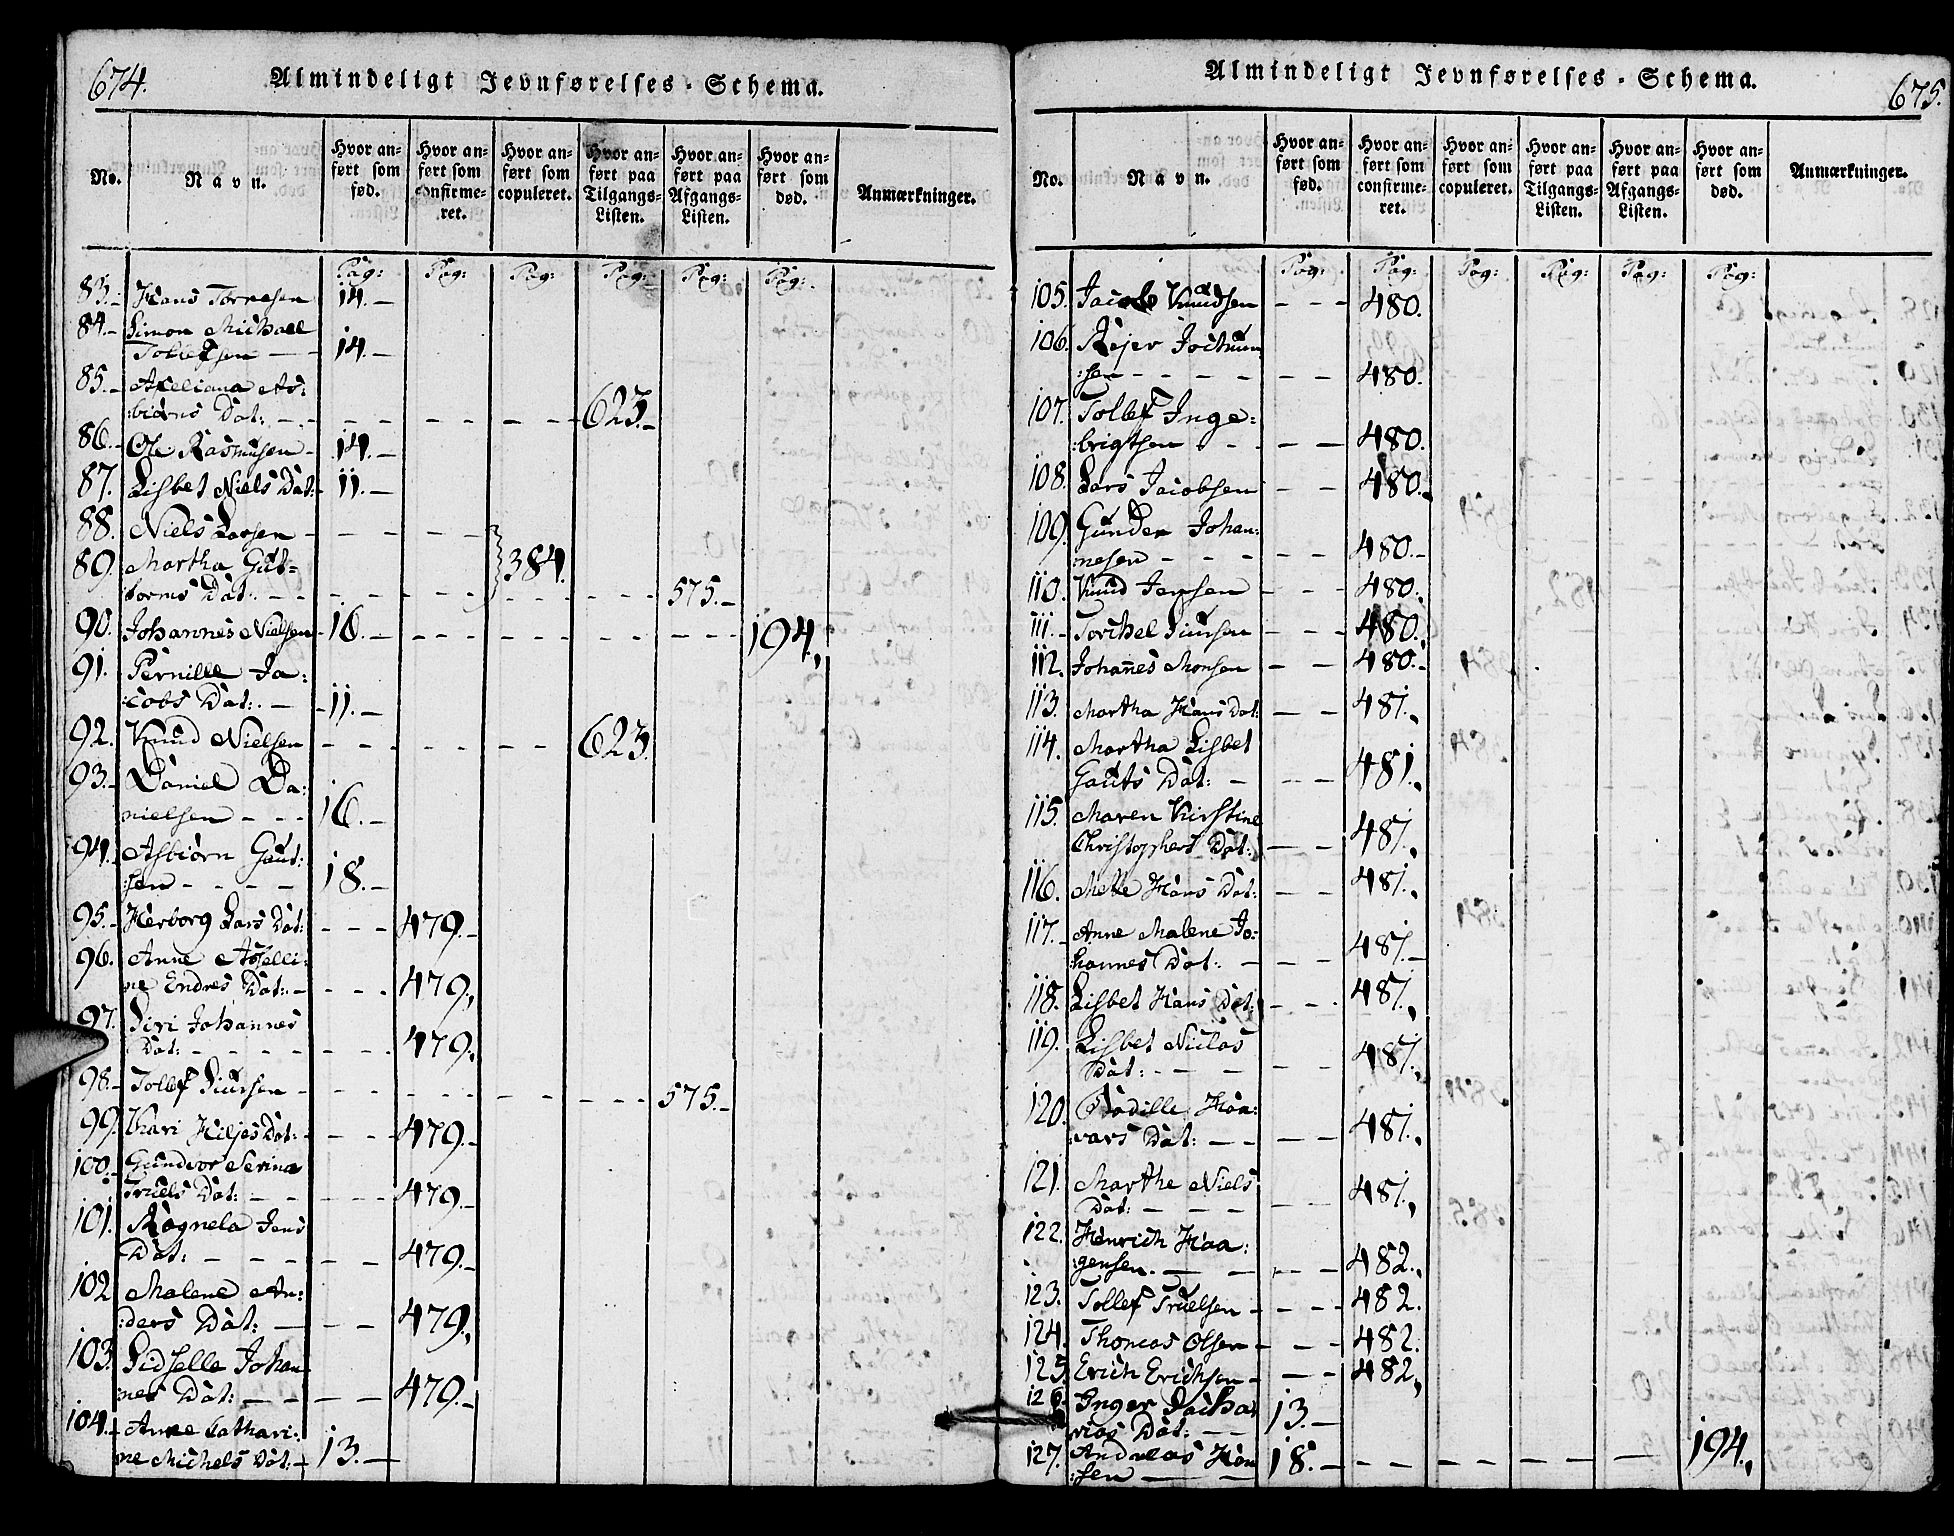 674.
Almindeligt Jevnførelses-Schema.
No.
Navn.
Hvor an-
ført som
fød.
Hvor an-
ført som
confirme-
ret.
Hvor an-
ført som
copuleret.
Hvor an-
ført paa
Tilgangs-
Listen.
Hvor an-
ført paa
Afgangs-
Listen.
Hvor an-
ført som
død.
Anmærkninger.
Pag: Pag: Pag: Pag: Pag: Pag:
83.- Hans Tørresen 14.-
84.- Simon Michael
Tollefsen - - 14.-
85.- Axeliana As:
:biørns Dat: - - - - - - - 623.-
86.- Ole Rasmusen - 14.-
87. Lisbet Niels Dat: 11.-
88. Niels Larsen - - - - -
89. Martha Gut- 384.
torms Dat: - - - - - - - - - 575.-
90. Johannes Nielsen - 16.- - - - - - - - 194.,
91. Pernille Ja:
:cobs Dat: - - 11.-
92. Knud Nielsen - - - - - - - 623.
93.- Daniel Da:
nielsen - - - 16.-
94. Asbiørn Gaut:
:sen - - - - 18.-
95.- Herborg Lars Dat: - - - 479.-
96. Anne Aselli:
ne Endres Dat: - - - - 479.,
97. Siri Johannes
Dat: - - - - - - - 479.,
98.- Tollef Siursen - - - - - - - - - 575.-
99. Kari Kiljes Dat: - - - 479.-
100.- Gundvor Serina
Truels Dat: - - - - - 479.-
101. Ragnela Jens
Dat: - - - - - - 479.-
102 Malene An:
:ders Dat: - - - 479.,
103. Sidselle Johan-
nes Dat: - - - - - 479.-
104.- Anne Cathari:
ne Michels Dat: - 13.-
675.
Almindeligt Jevnførelses-Schema.
No.
Navn.
Hvor an-
ført som
fød.
Hvor an-
ført som
confirme-
ret.
Hvor an-
ført som
copuleret.
Hvor an-
ført paa
Tilgangs-
Listen.
Hvor an-
ført paa
Afgangs-
Listen.
Hvor an-
ført som
død.
Anmærkninger.
Pag: Pag: Pag: Pag: Pag: Pag:
105. Jacob Knudsen - - - 480.
106. Reier Jochum
:sen - - - - - - 480.
107. Tollef Inge:
:brigtsen - - - - 480.
108. Lars Jacobsen - - 480.
109. Gunder Johan:
:nesen - - - - - 480.-
110. Knud Jensen - - - 480.
111.- Torchel Siursen - - - 480.
112. Johannes Monsen - - 480.-
113. Martha Hans Dat: - - 481.,
114. Martha Lisbet
Gauts Dat: - - - 481.,
115. Maren Kirstine
Christophers Dat: - - 481.,
116. Mette Hans Dat: - - 481.,
117.- Anne Malene Jo:
:hannes Dat: - - - 481.-
118. Lisbet Hans Dat: - - - 481.,
119. Lisbet Niclas
Dat: - - - - - 481.,
120. Bodille Haa:
:vars Dat: - - - - 481.,
121. Marthe Niels
Dat: - - - - - - 481.,
122. Henrich Haa:
:gensen. - - - - 482.,
123. Tollef Truelsen - - - 482.
124. Thomas Olsen - - - 482.
125 Erich Erichsen - - - 482.,
126. Inger Zacha
rias Dat: - - 13.-
127. Andreas Han
:sen - - 18.- - - - - - - 194.,